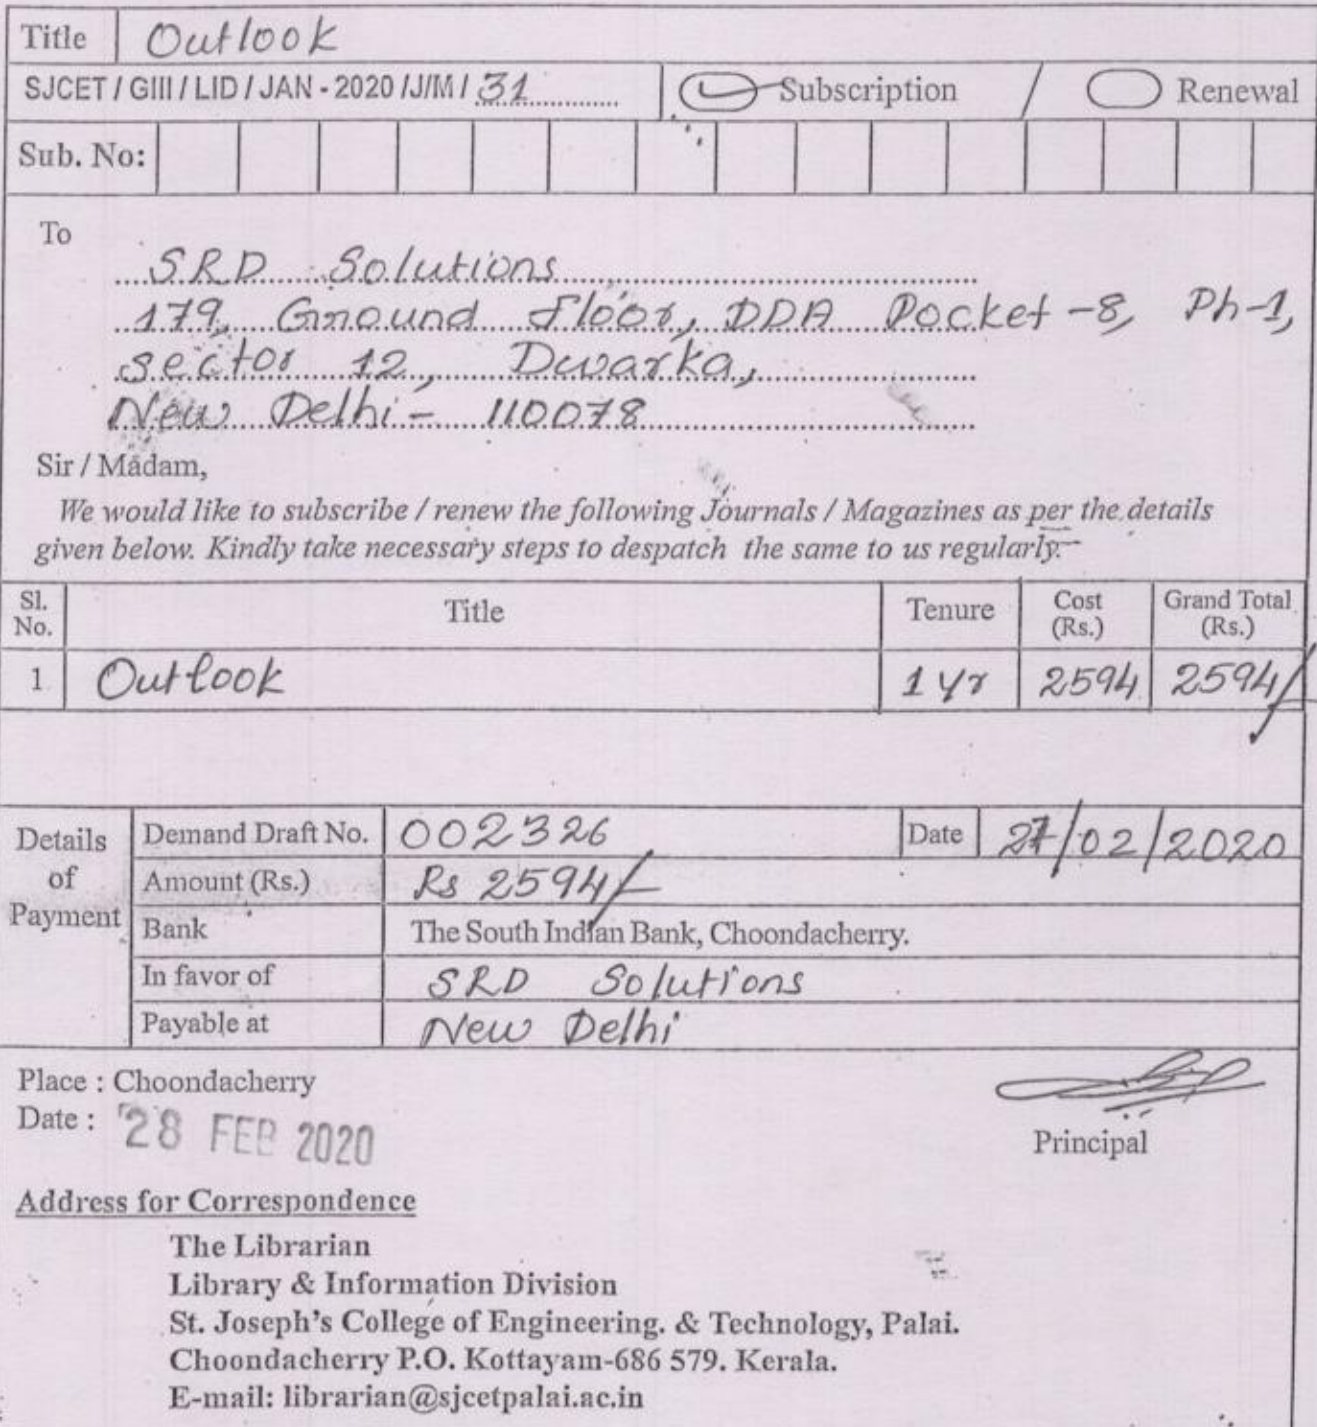 Title Outlook
SJCET / GIII / LID / JAN - 2020 /J/M/ 31 Subscription / Renewal
Sub. No:
To
SRD Solutions
179, Ground floor, DDA Pocket-8, Ph-1,
sector 12, Dwarka,
New Delhi - 110078
Sir / Madam,
We would like to subscribe / renew the following Journals / Magazines as per the details
given below. Kindly take necessary steps to despatch the same to us regularly.
Sl. No. Title Tenure Cost (Rs.) Grand Total (Rs.)
1 Outlook 1 yr 2594 2594/-
Details of Payment
Demand Draft No. 002326 Date 27/02/2020
Amount (Rs.) Rs 2594/-
Bank The South Indian Bank, Choondacherry.
In favor of SRD Solutions
Payable at New Delhi
Place : Choondacherry
Date : 28 FEB 2020
Principal
Address for Correspondence
The Librarian
Library & Information Division
St. Joseph's College of Engineering. & Technology, Palai.
Choondacherry P.O. Kottayam-686 579. Kerala.
E-mail: librarian@sjcetpalai.ac.in